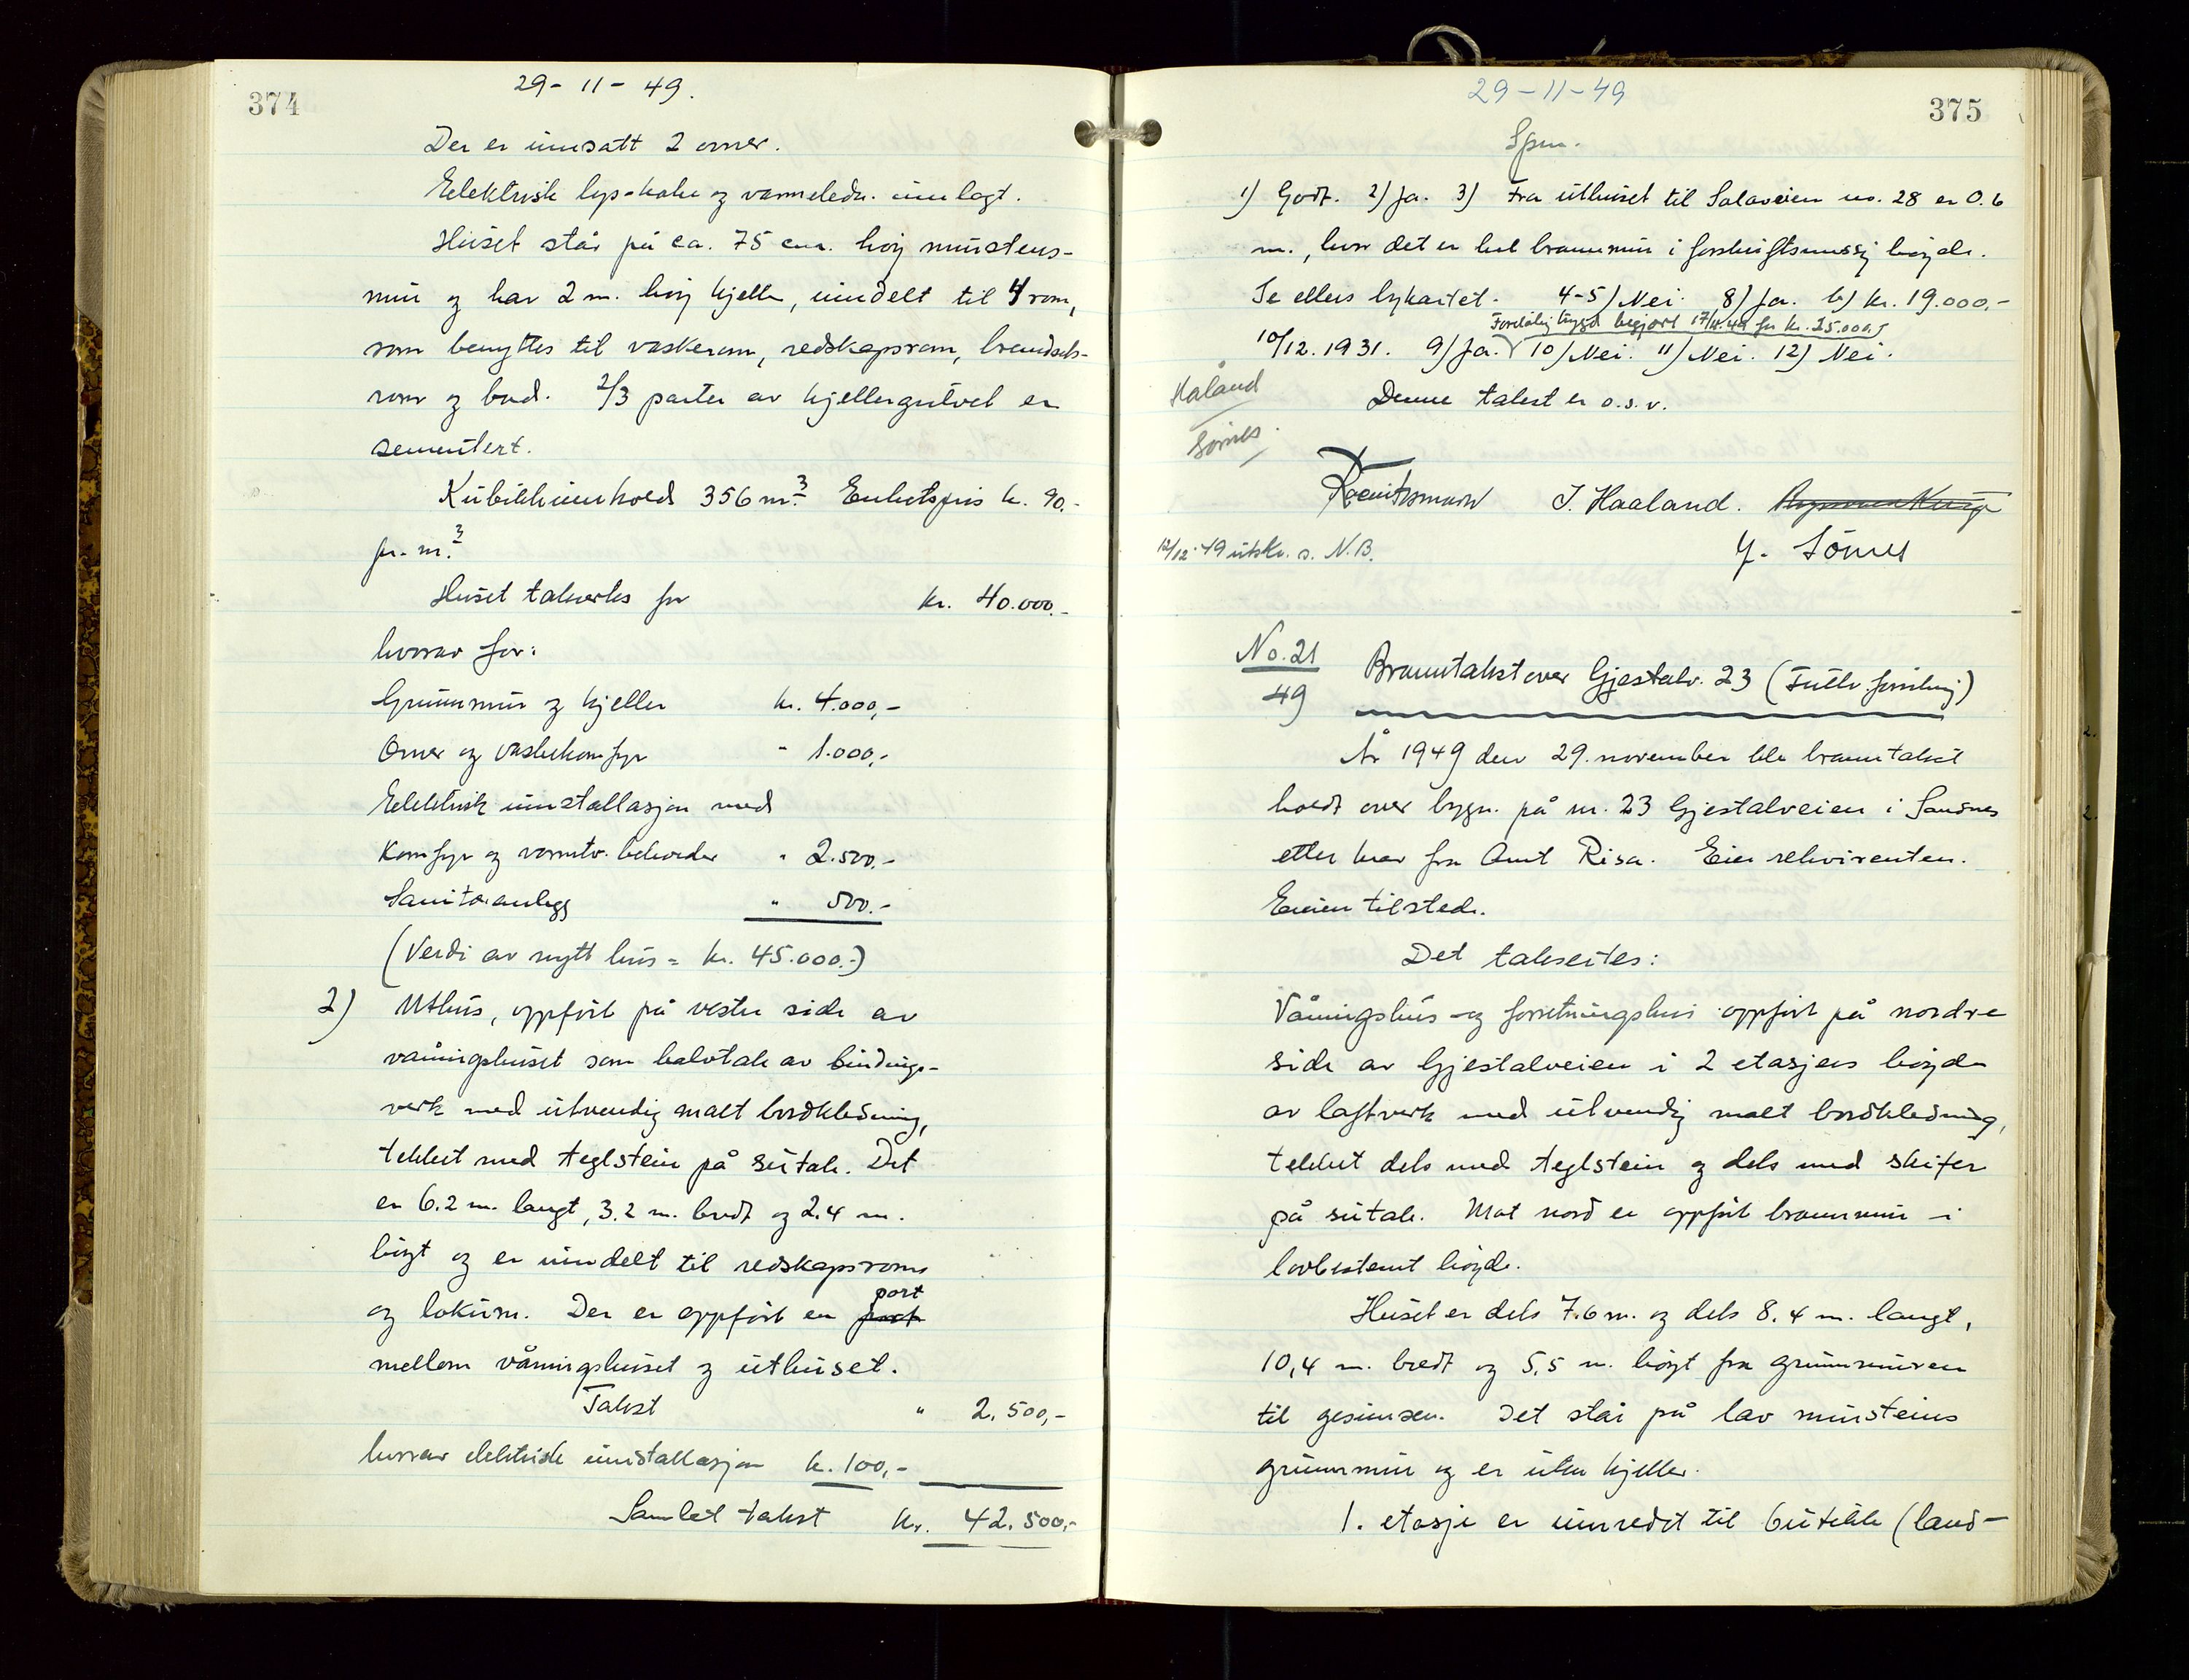 374
29-11-49.
Der er innsatt 2 ovner.
Elektrisk lys-koke og varmeledn. innlagt.
Huset står på ca. 75 cm. høy murstens-
mur og har 2 m. høy kjeller, inndelt til 4 rom,
som benyttes til vaskerom, redskapsrom, brendsels-
rom og bod. 2/3 parter av kjellergulvet er
sementert.
Kubikkinnhold 356 m.³ Enhetspris kr. 90.-
pr. m.³
Huset takseres for kr. 40.000.-
hvorav for:
Grunnmur og kjeller kr. 4.000,-
Ovner og vaskekomfyr " 1.000,-
Elektrisk innstallasjon med
Komfyr og varmtv. beholder " 2.500,-
Sanitæranlegg " 500.-
(Verdi av nytt hus = kr. 45.000.-)
2) Uthus, oppført på vestre side av
våningshuset som halvtak av bindings-
verk med utvendig malt bordkledning,
tekket med teglstein på sutak. Det
er 6.2 m. langt, 3.2 m. bredt og 2.4 m.
høyt og er inndelt til redskapsrom
port
og lokum. Der er oppført en port
mellom våningshuset og uthuset.
Takst " 2.500,-
hvorav elektrisk innstallasjon kr. 100,-
Samlet takst kr. 42.500,-
375
29-11-49
Spm.
1) Godt. 2) Ja. 3) Fra uthuset til Solaveien no. 28 er 0.6
m., hvor det er hel brannmur i forskriftsmessig høyde.
Se ellers bykartet. 4-5) Nei. 8) Ja. b) kr. 19.000,-
Foreløbig trygd begjært 17/11.49 for kr. 25.000.-
10/12.1931. 9) Ja. 10) Nei. 11) Nei. 12) Nei.
Håland
Sømes.
Denne takst er o.s.v.
J. Haaland.
12/12-49 utskr. s. N.B.
Y. Sömes
No. 21
49
Branntakst over Gjestalv. 23 (Fullv. forsikring)
År 1949 den 29. november ble branntakst
holdt over bygn. på nr. 23 Gjestalveien i Sandnes
etter krav fra Amt Risa. Eier rekvirenten.
Eieren tilstede.
Det takseres:
Våningshus - og forretningshus oppført på nordre
side av Gjestalveien i 2 etasjers høyde
av laftverk med utvendig malt bordkledning,
tekket dels med teglstein og dels med skifer
på sutak. Mot nord er oppført brannmur i
lovbestemt høyde.
Huset er dels 7.6 m. og dels 8.4 m. langt,
10,4 m. bredt og 5,5 m. høyt fra grunnmuren
til gesimsen. Det står på lav mursteins
grunnmur og er uten kjeller.
1. etasje er innredet til butikk (land-